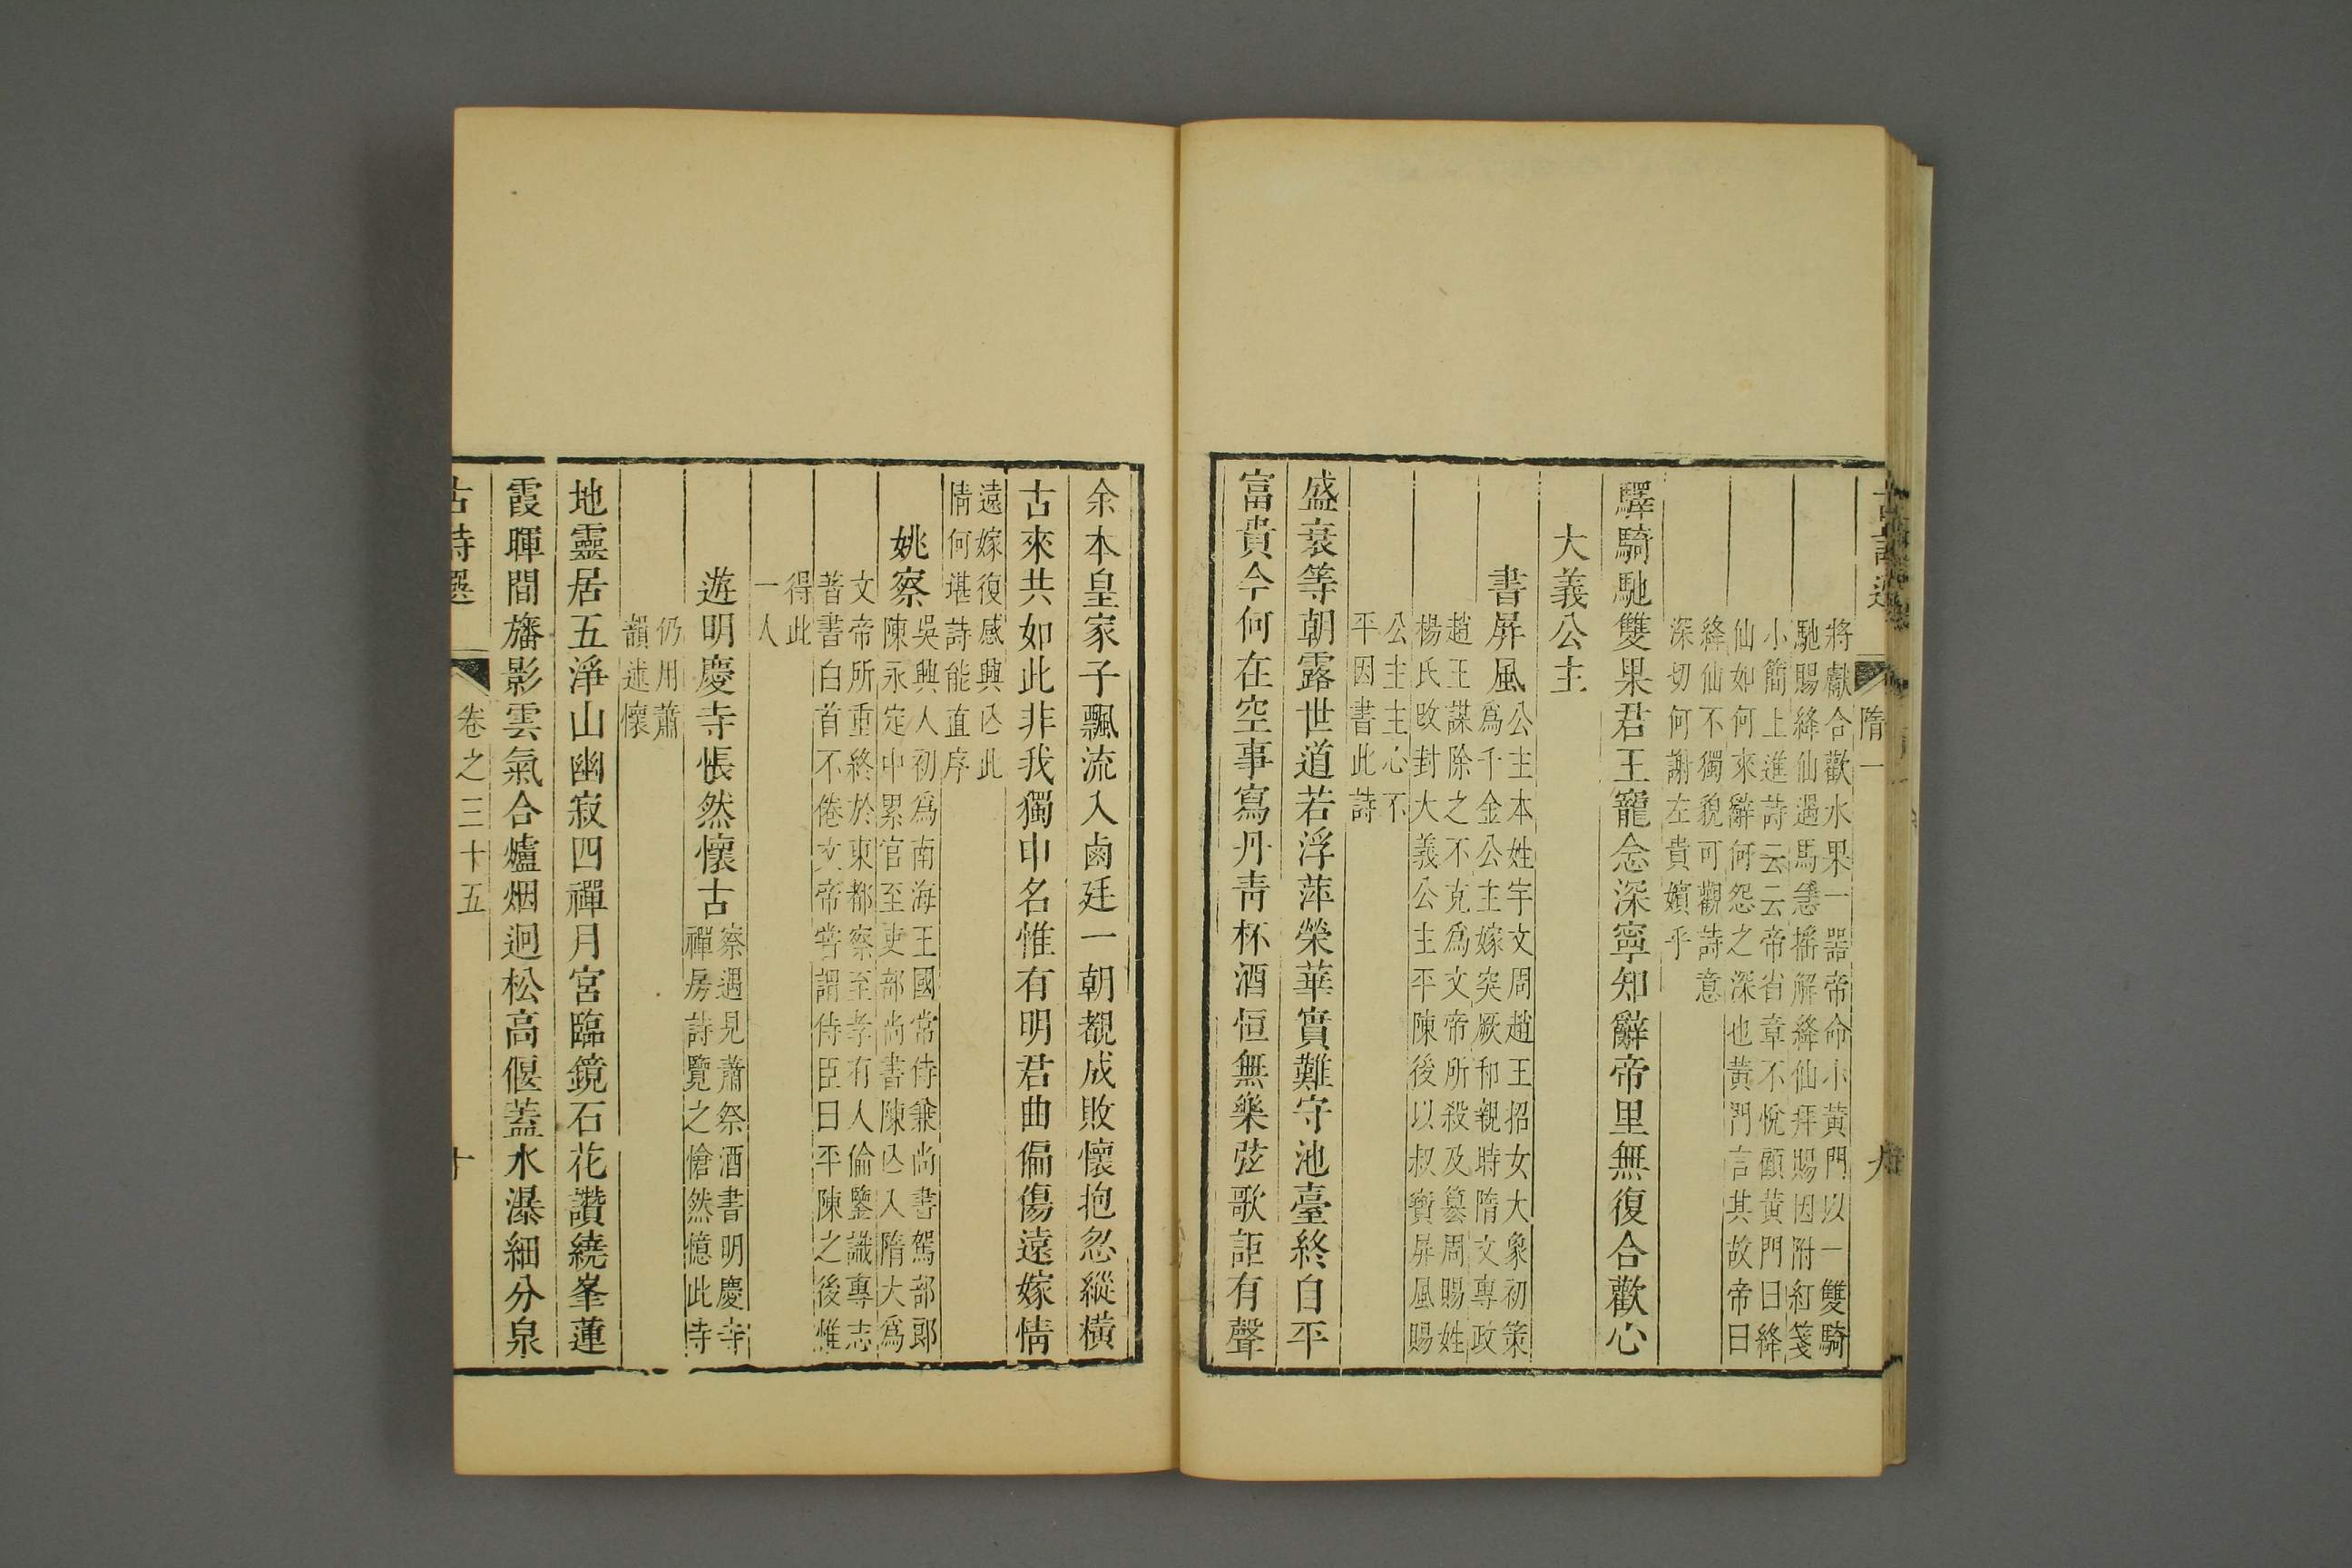 隋一
將獻合歡水果一器帝命小黃門以一雙騎
馳賜絳仙遇馬急搖解絳仙拜賜因附紅箋
小簡上進詩云云帝省章不悅顧黃門曰絳
仙如何來辭何怨之深也黃門言其故帝曰
絳仙不獨貌可觀詩意
深切何謝左貴嬪乎
驛騎馳雙果君王寵念深寧知辭帝里無復合歡心
大義公主
書屏風
公主本姓宇文周趙王招女大象初策
爲千金公主嫁突厥和親時隋文專政
趙王謀除之不克爲文帝所殺及簒周賜姓
楊氏改封大義公主平陳後以叔寶屏風賜
公主主心不
平因書此詩
盛衰等朝露世道若浮萍榮華實難守池臺終自平
富貴今何在空事寫丹青杯酒恒無樂弦歌詎有聲
余本皇家子飄流入鹵廷一朝覩成敗懷抱忽縱橫
古來共如此非我獨申名惟有明君曲偏傷遠嫁情
遠嫁復感興亾此
情何堪詩能直序
姚察
吳興人初爲南海王國常侍兼尚書駕部郎
陳永定中累官至吏部尚書陳亾入隋大爲
文帝所重終於東都察至孝有人倫鑒識專志
著書白首不倦文帝嘗謂侍臣曰平陳之後惟
得此
一人
遊明慶寺悵然懷古
察遇見蕭祭酒書明慶寺
禪房詩覽之愴然憶此寺
仍用蕭
韻述懷
地靈居五淨山幽寂四禪月宮臨鏡石花讚繞峯蓮
霞暉間旛影雲氣合爐烟迥松高偃蓋水瀑細分泉
古詩選
卷之三十五
十